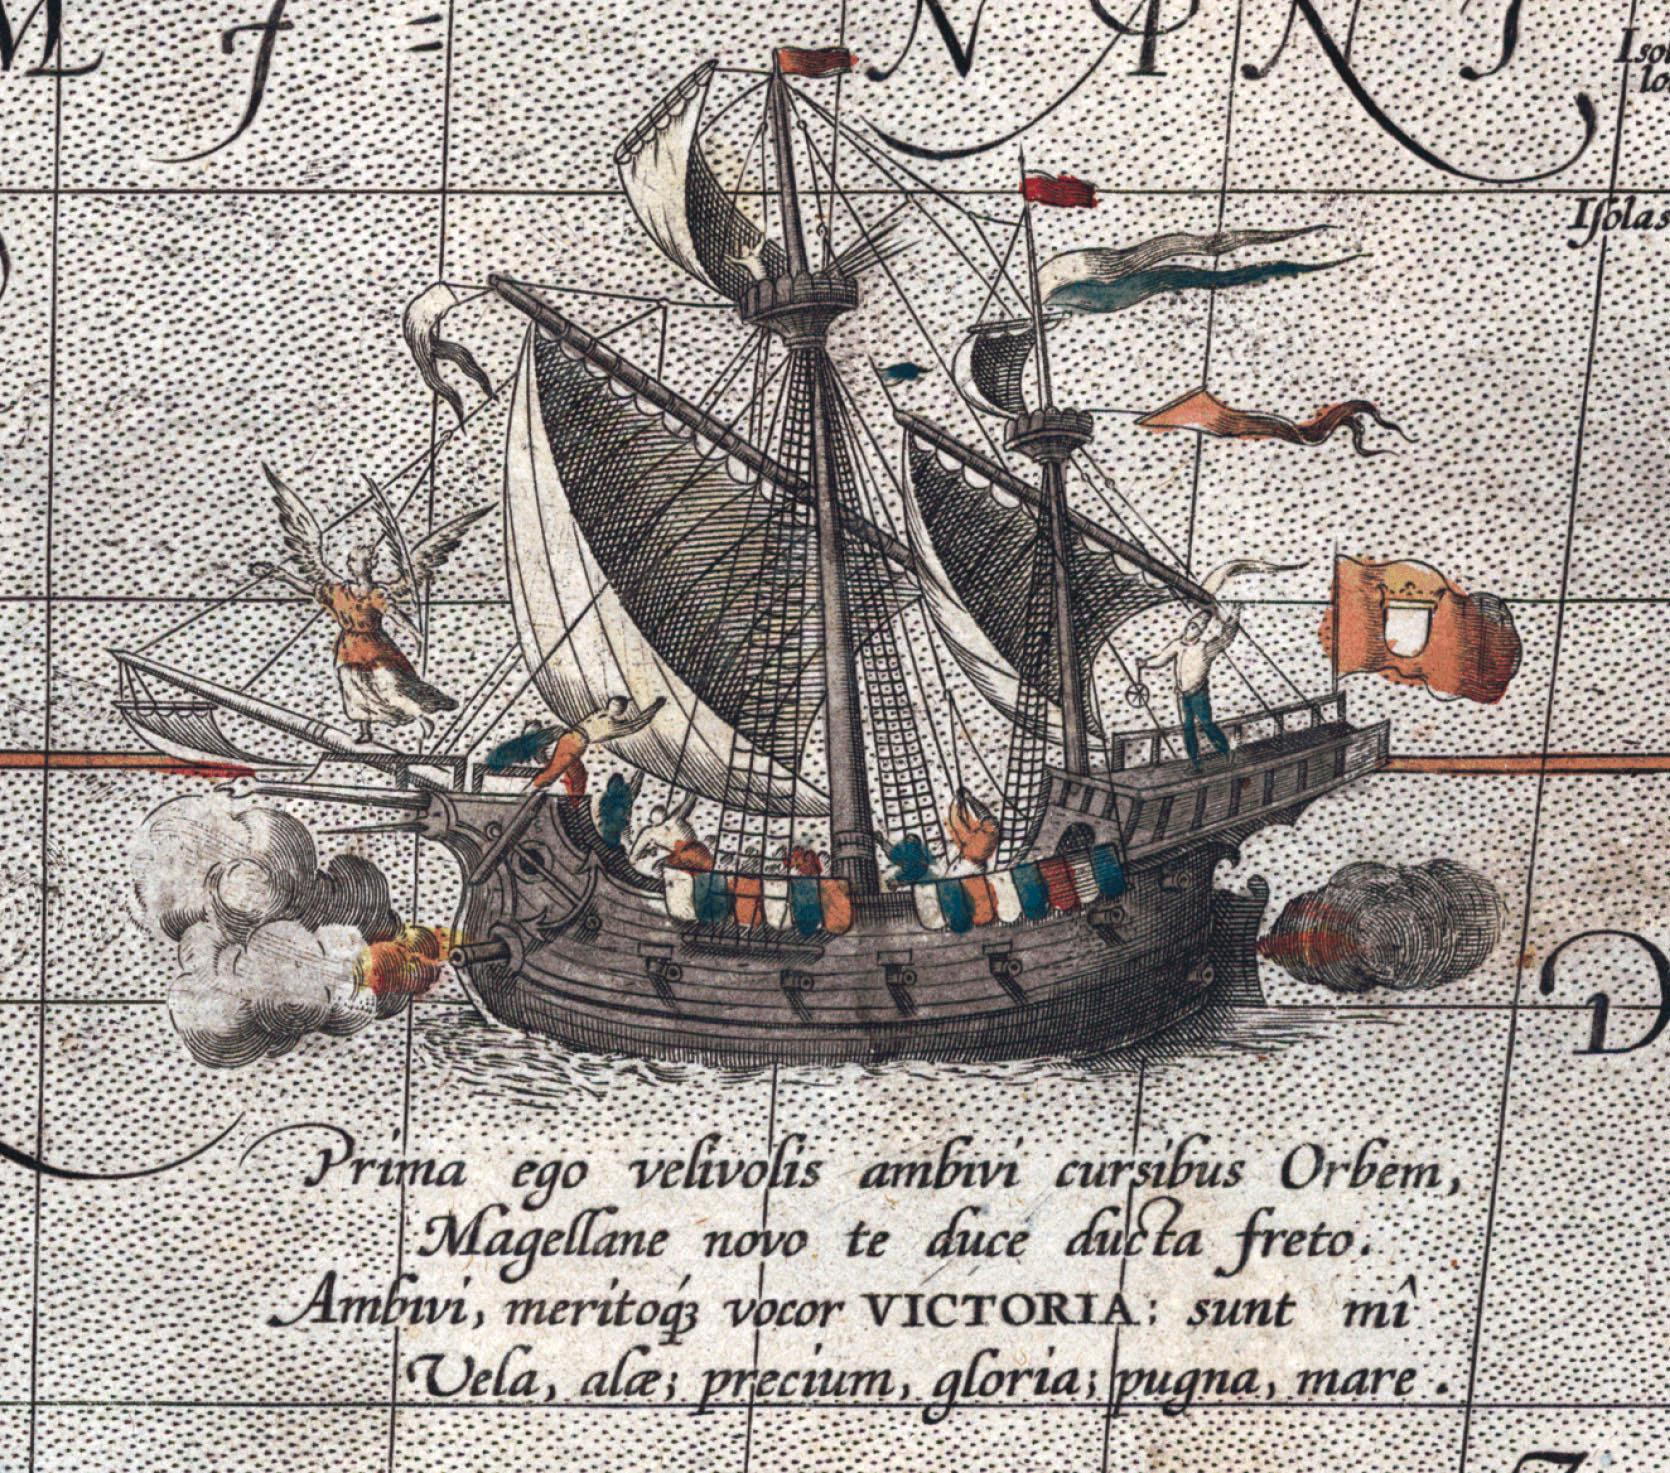 Isolas
Prima ego velivolis ambivi cursibus Orbem,
Magellane novo te duce ducta freto.
Ambivi, meritoqꝫ́ vocor VICTORIA: sunt mî
Vela, alæ; precium, gloria; pugna, mare.